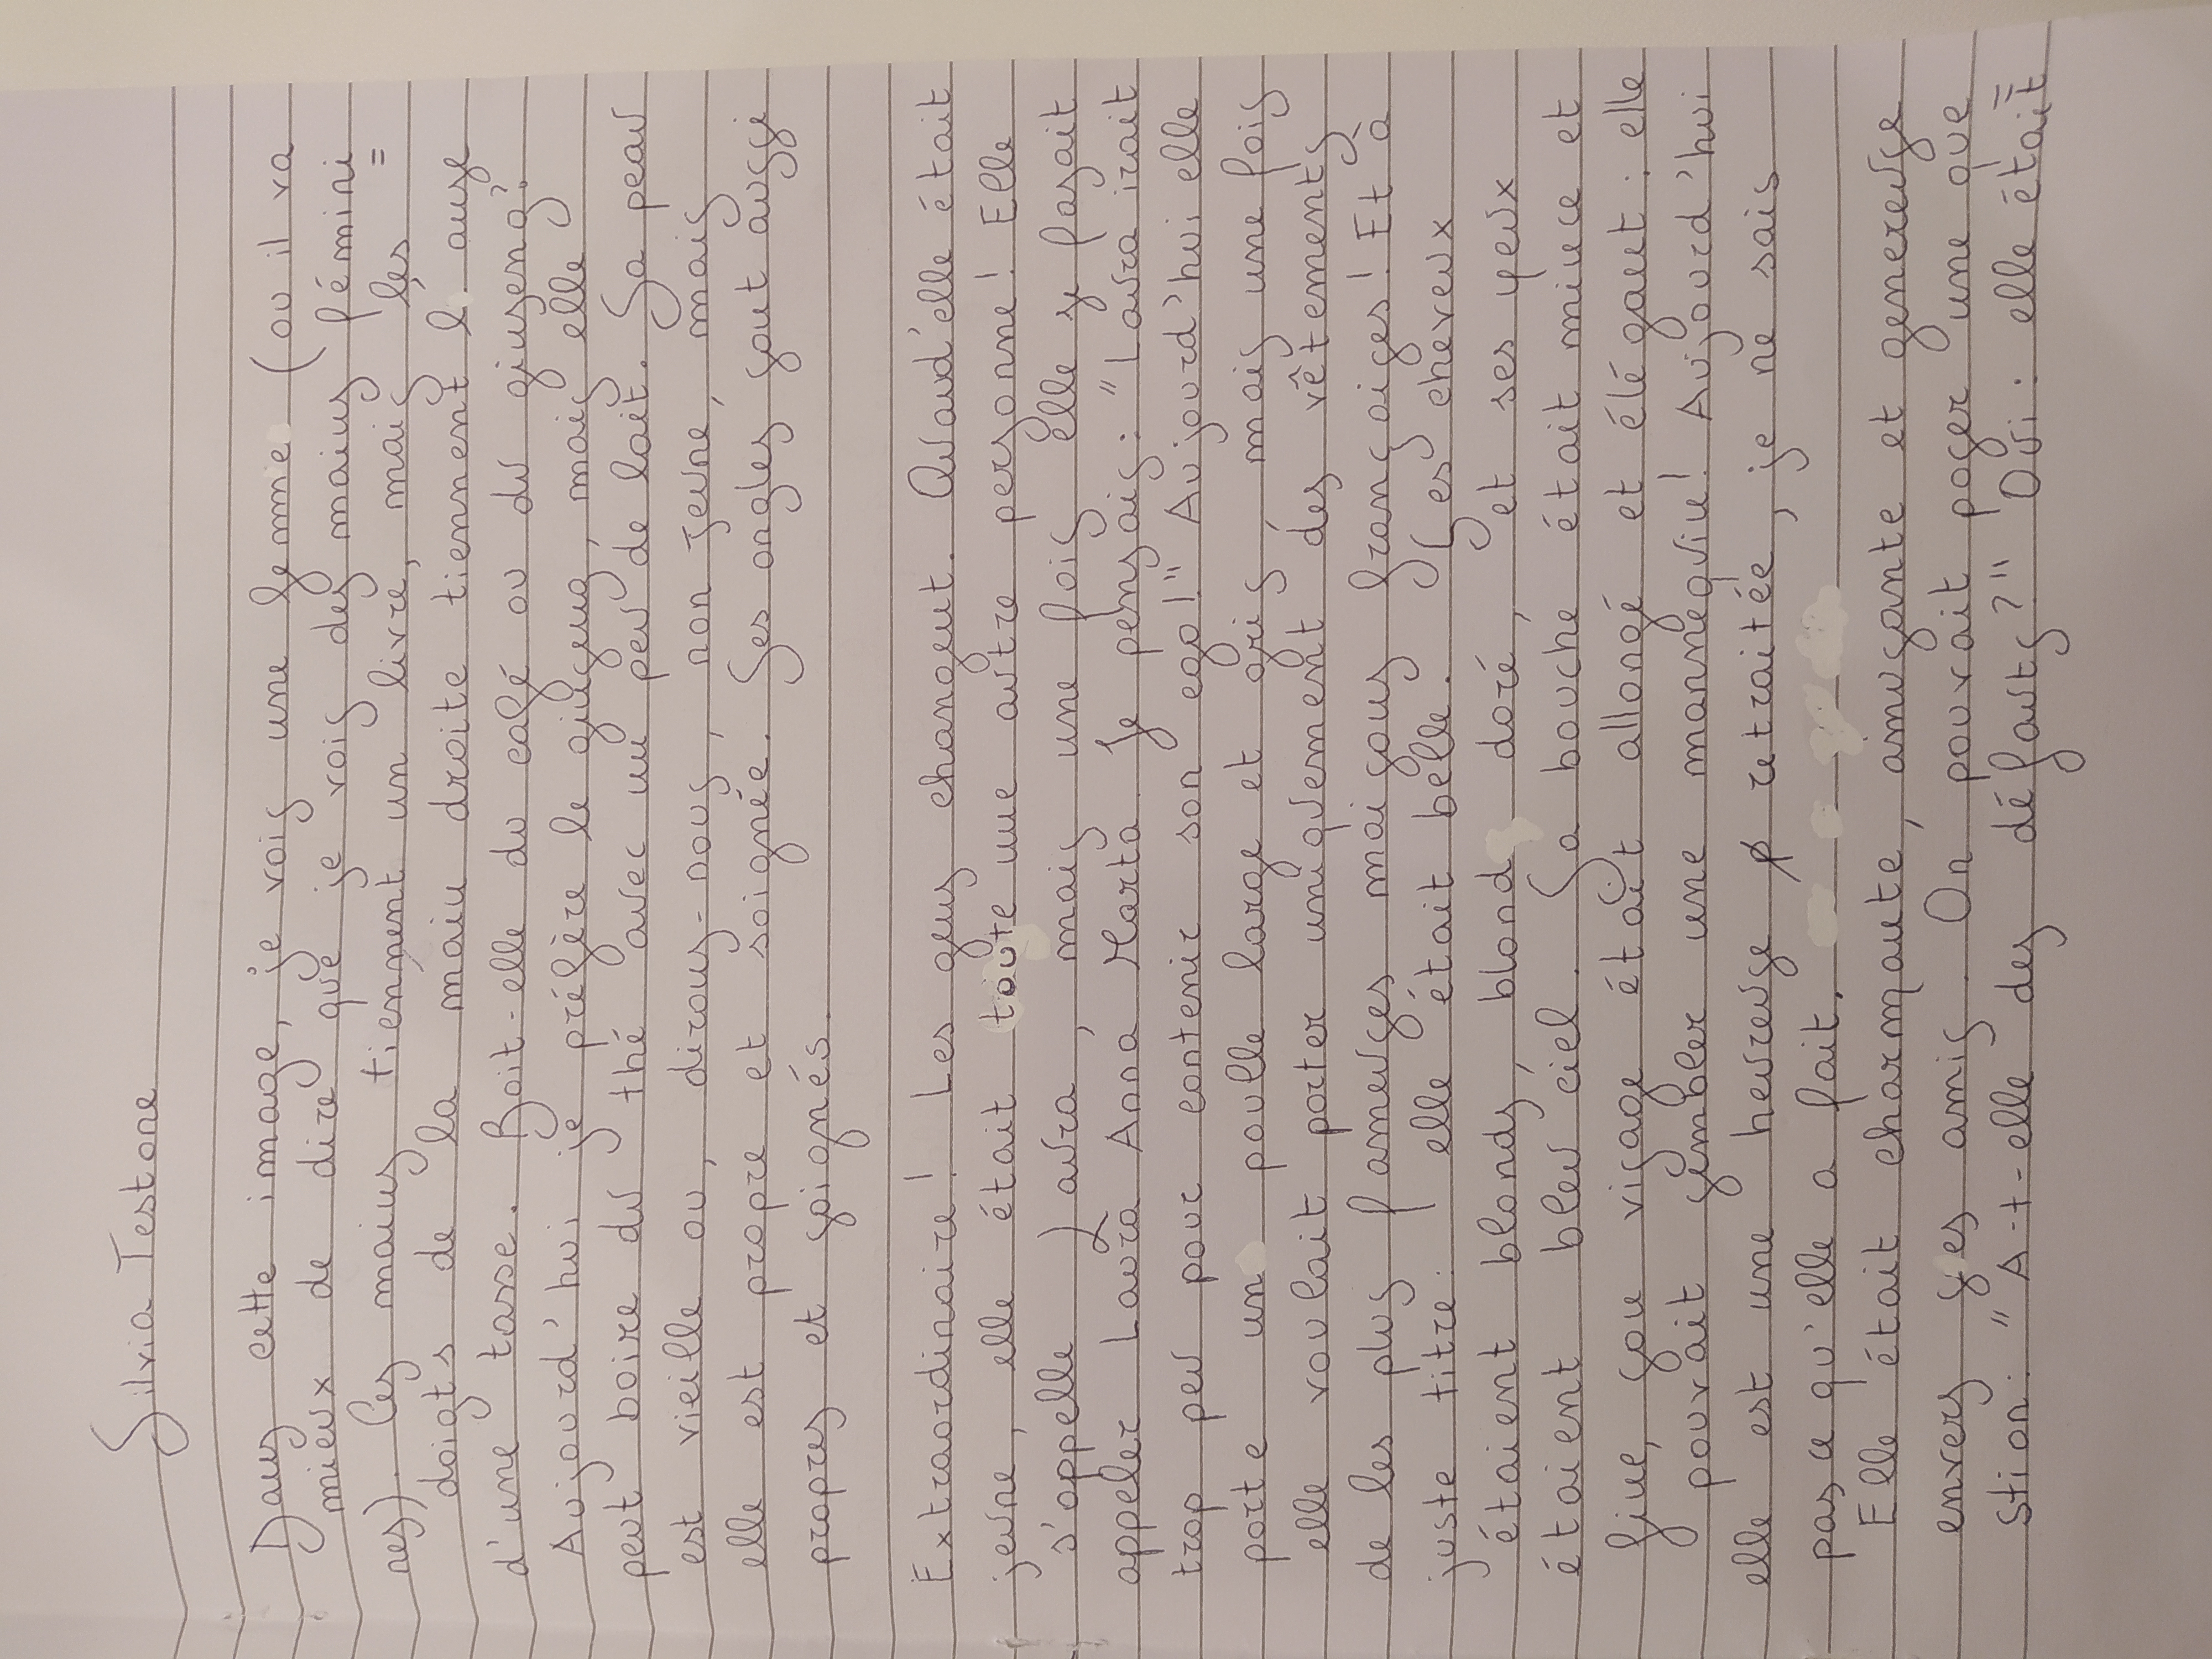 Silvia Testone
Dans cette image, je vois une femme (ou il va
mieux de dire que je vois des mains fémini=
nes). Ces mains tiennent un livre, mais les
doigts de la main droite tiennent l'anse
d'une tasse. Boit-elle du café ou du ginseng?
Aujourd'hui je préfère le ginseng, mais elle
peut boire du thé avec un peu de lait. Sa peau
est vieille ou, disons-nous, non jeune, mais
elle est propre et soignée. Ses ongles sont aussi
propres et soignés.
Extraordinaire! Les gens changent. Quand'elle était
jeune, elle était toute une autre personne! Elle
s'appelle Laura, mais une fois elle se fasait
appeler Laura Anna Marta. Je pensais: "Laura irait
trop peu pour contenir son ego!" Aujourd'hui elle
porte un poulle large et gris mais une fois
elle voulait porter uniquement des vêtements
de les plus fameuses maisons françaises! Et à
juste titre: elle était belle. Ses cheveux
étaient blonds, blond doré, et ses yeux
étaient bleu ciel. Sa bouche était mince et
fine, son visage était allongé et élégant: elle
pouvait sembler une mannequin! Aujourd'hui
elle est une heureuse retraitée, je ne sais
pas ce qu'elle a fait.
Elle était charmante, amusante et genereuse
envers ses amis. On pouvait poser une que
stion: "A-t-elle des défauts?" Oui: elle était=